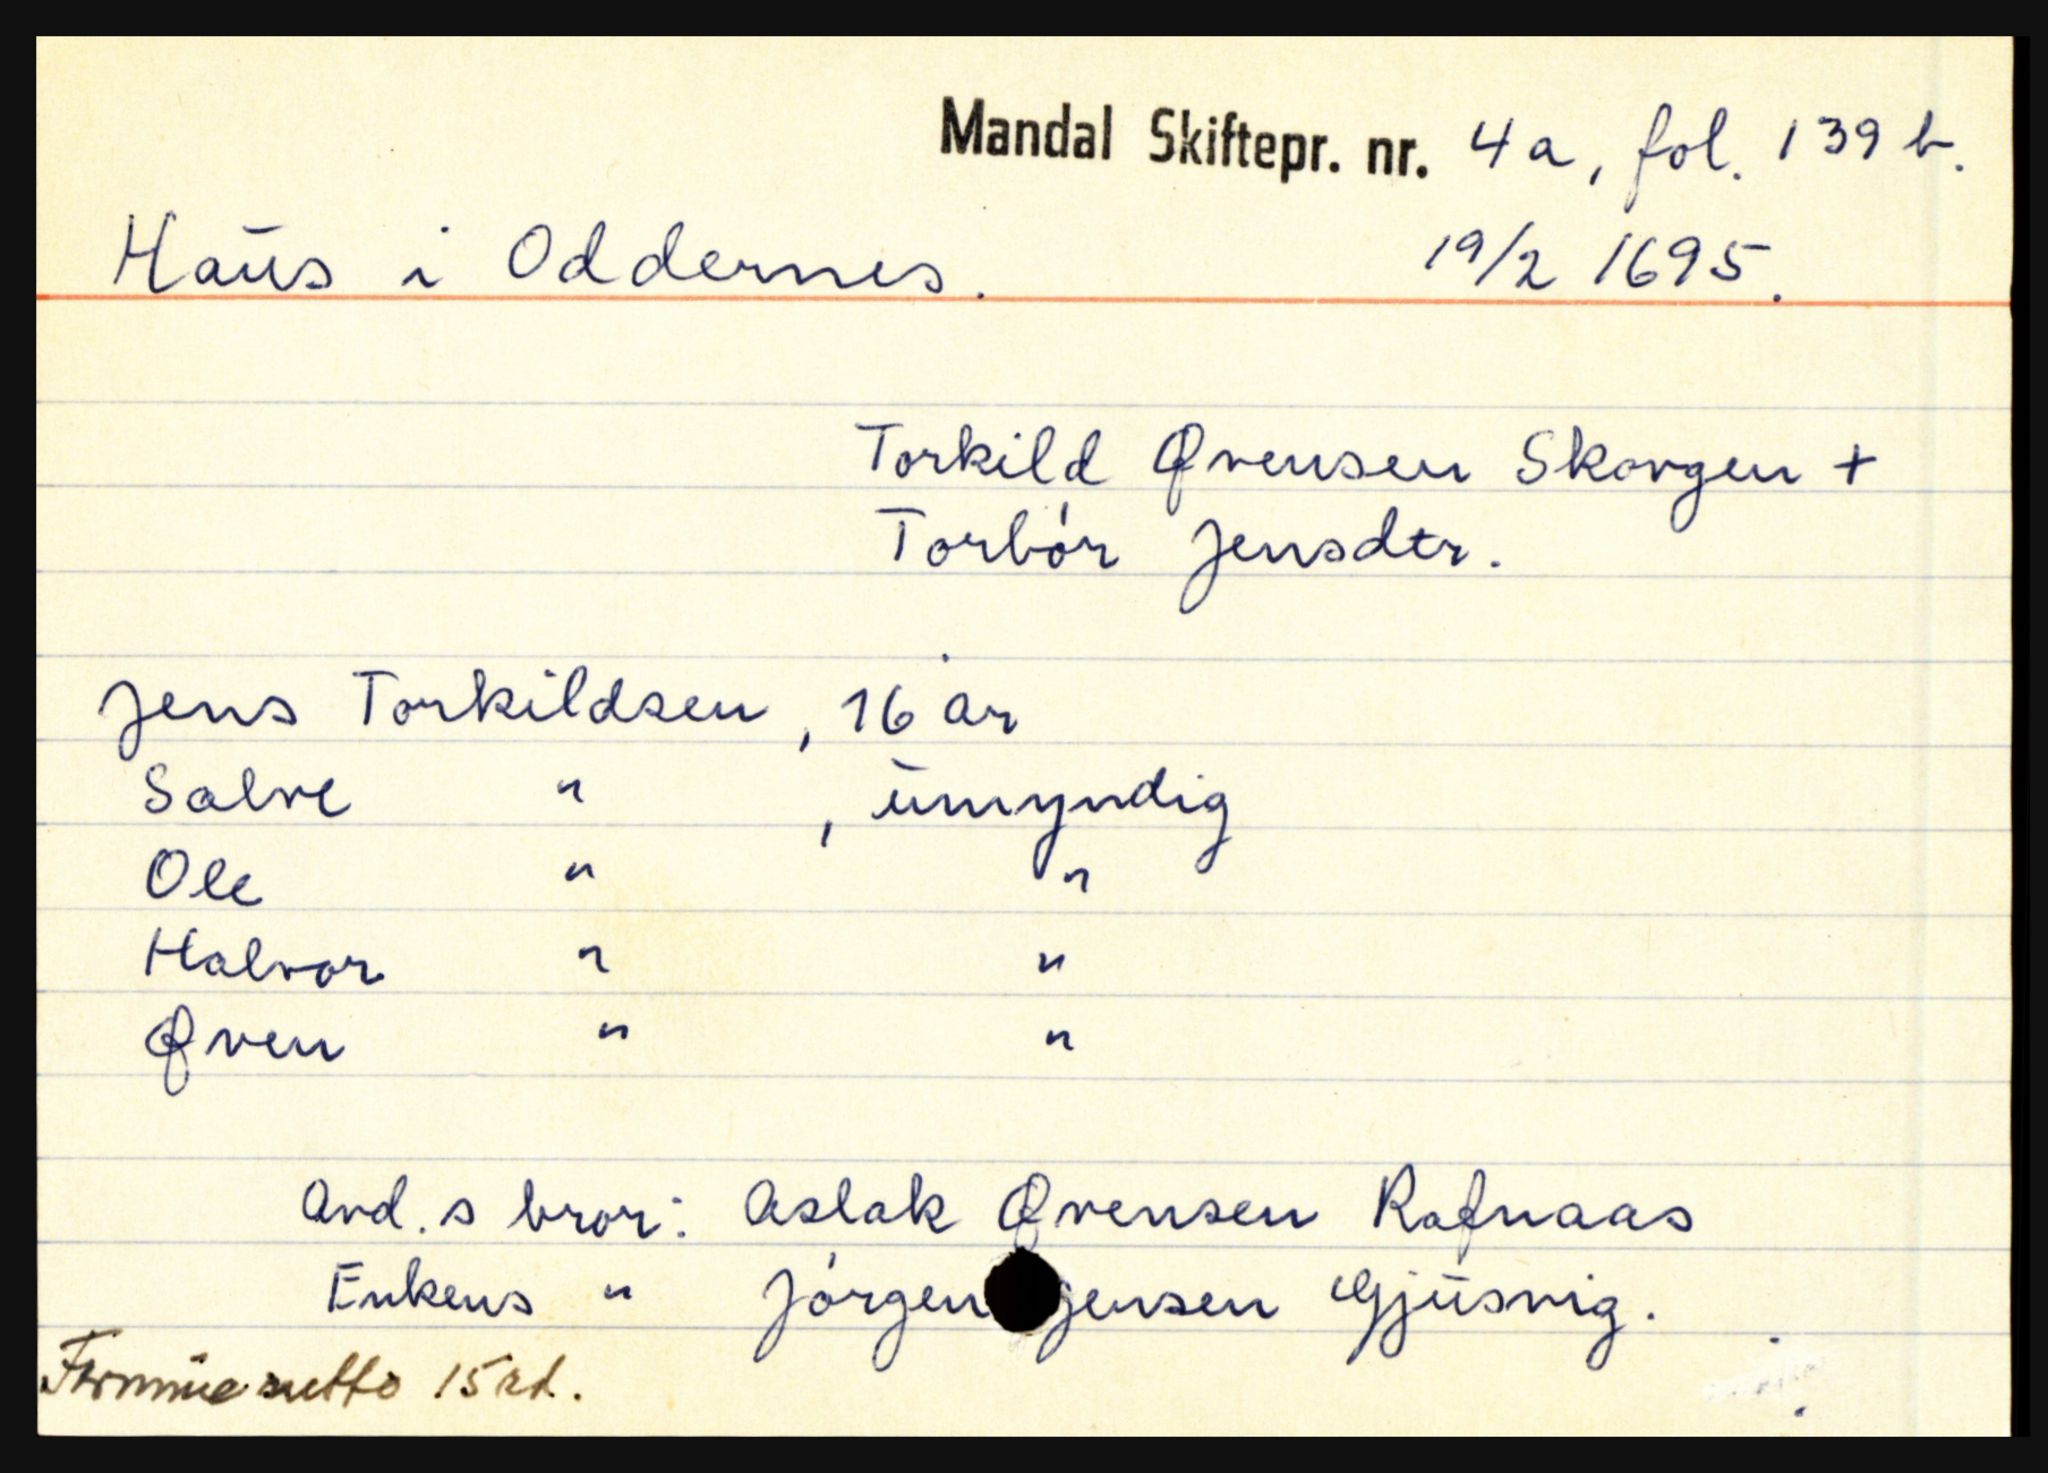 Mandal Skiftepr. nr. 4a, fol. 139 b.
Haus i Oddernes. 19/2 1695.
Torkild Øvensen Skovgen +
Torbór Jensdtr.
Jens Torkildsen, 16 år
Salve " , umyndig
Ole " "
Halvor " "
Øven " "
Avd.s bror: Aslak Øvensen Rafnaas
Enkens " Jórgen Jensen Gjusvig.
Formue netto 15 rd.